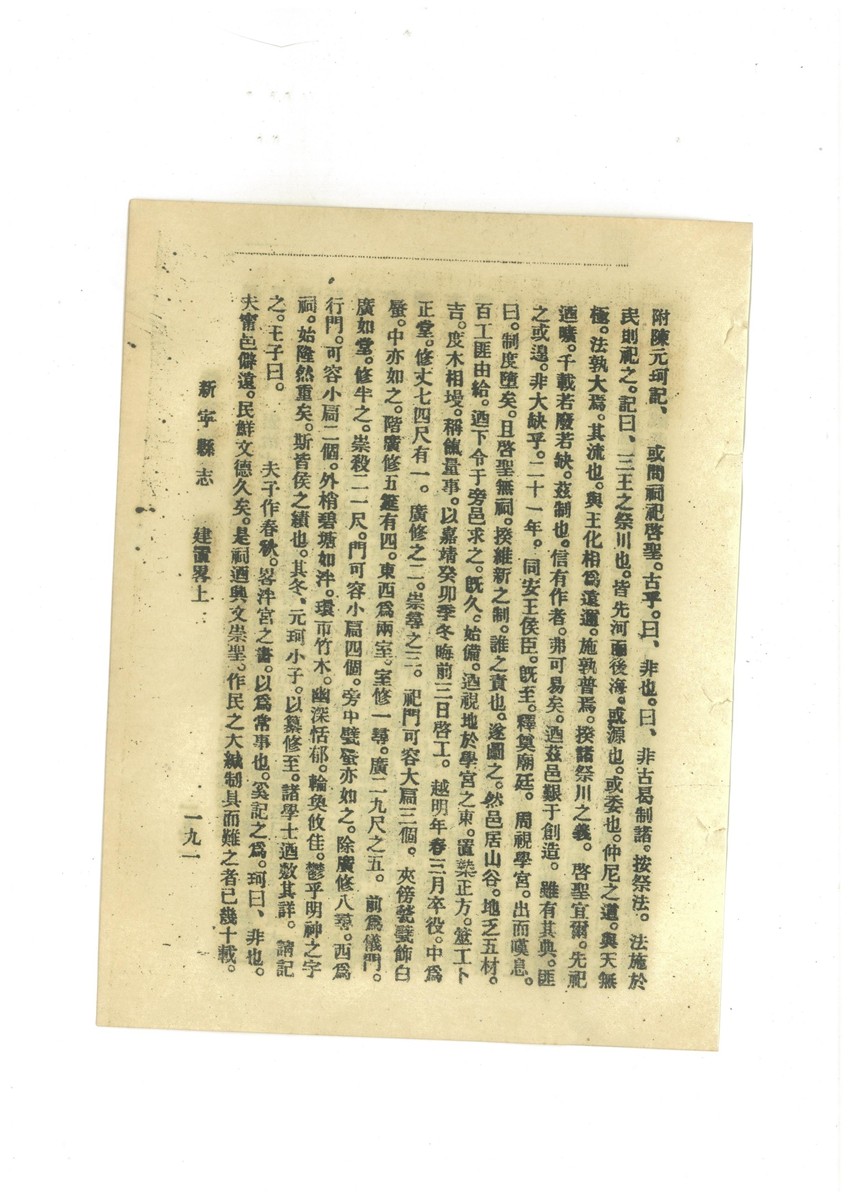 附陳元珂記、　或問祠祀啓聖。古乎。曰、非也。曰、非古曷制諸。按祭法。法施於
民則祀之。記曰、三王之祭川也。皆先河而後海。或源也。或委也。仲尼之道。與天無
極。法孰大焉。其流也。與王化相爲遠邇。施孰普焉。揆諸祭川之義。啓聖宜爾。先祀
迺曠。千載若廢若缺。茲制也。信有作者。弗可易矣。迺茲邑艱于創造。雖有其典。匪
之或遑。非大缺乎。二十一年。同安王侯臣。旣至。釋奠廟廷。周視學宮。出而嘆息。
曰。制度墮矣。且啓聖無祠。揆維新之制。誰之責也。遂圖之。然邑居山谷。地乏五材。
百工匪由給。迺下令于旁邑求之。旣久。始備。迺視地於學宮之東。置槷正方。筮工卜
吉。度木相墁。稱餼量事。以嘉靖癸卯季冬晦前三日啓工。越明年春三月卒役。中爲
正堂。修丈七四尺有一。廣修之二。崇尋之三。祀門可容大扃三個。夾傍甃壁飾白
蜃。中亦如之。階廣修五筵有四。東西爲兩室。室修一尋。廣二九尺之五。前爲儀門。
廣如堂。修半之。崇殺二一尺。門可容小扃四個。旁中壁蜃亦如之。除廣修八尋。西爲
行門。可容小扃二個。外梢碧塘如泮。環帀竹木。幽深恬郁。輪奐攸佳。鬱乎明神之宇
祠。始隆然重矣。斯皆侯之績也。其冬、元珂小子。以纂修至。諸學士迺敷其詳。請記
之。王子曰。　夫子作春秋。畧泮宮之書。以爲常事也。奚記之爲。珂曰、非也。
夫甯邑僻遠。民鮮文德久矣。是祠迺興文崇聖。作民之大緘制具而難之者已幾十載。
新寧縣志　建置畧上　一九一